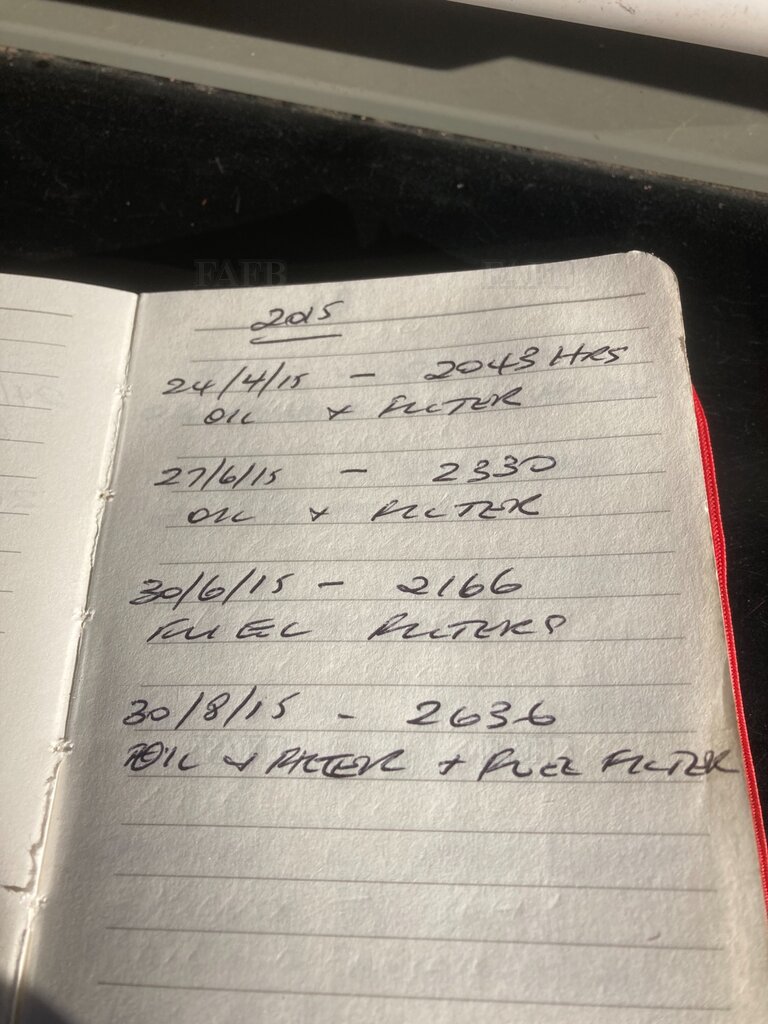 FAFB FAFB
2015
24/4/15 - 2043 HRS
OIL + FILTER
27/6/15 - 2330
OIL + FILTER
30/6/15 - 2166
FUEL FILTERS
30/8/15 - 2636
OIL + FILTER + FUEL FILTER